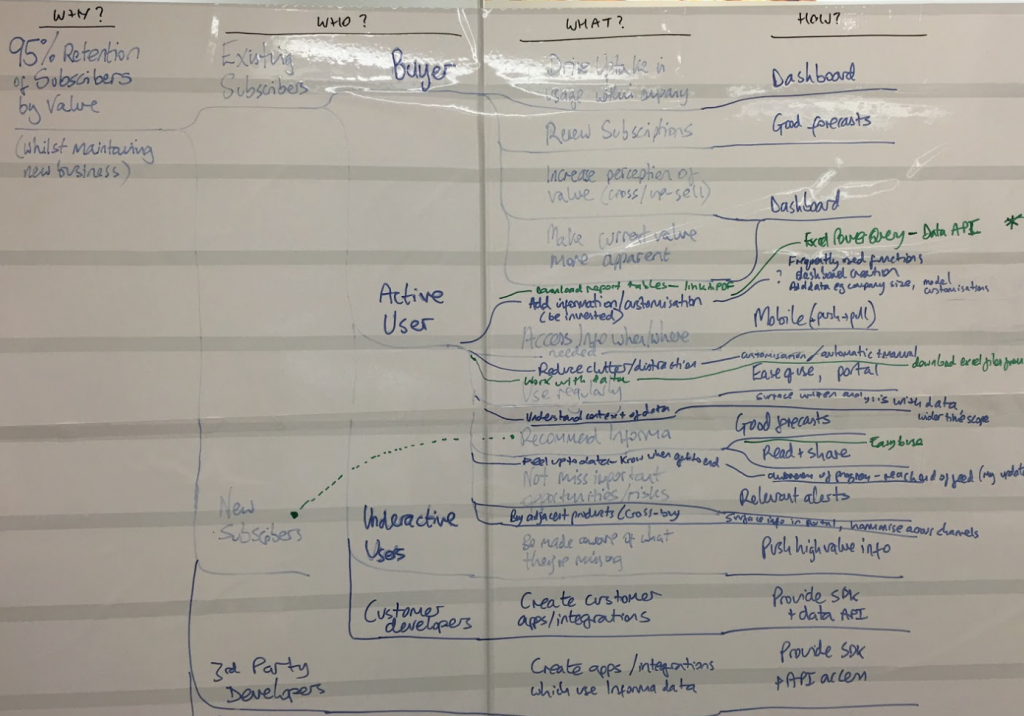 WHY?
WHO?
WHAT?
HOW?
95% Retention
of Subscribers
by Value
(whilst maintaining
new business)
Existing
Subscribers
Buyer
Drive uptake in
usage within company
Dashboard
Renew Subscriptions
Good forecasts
Increase perception of
value (cross/up-sell)
Dashboard
Make current value
more apparent
Excel Power Query - Data API *
Frequently used functions
? dashboard creation
Add data eg company size, model
customisations
Active
User
Download report tables - link in PDF
Add information/customisation
(be invested)
Mobile (push+pull)
Access info when/where
needed
Reduce clutter/distraction
customisation/automatic+manual
Work with data
download excel files from
Ease of use, portal
Use regularly
Surface written analysis with data
Understand context of data
wider timescope
Good forecasts
Recommend Informa
Easy to use
Read + share
Feel up to date - know when get to end
awareness of progress - reach end of feed (my updates
Not miss important
opportunities/risks
Relevant alerts
New
Subscribers
Underactive
Users
By adjacent products (cross-buy
Surface info in portal, harmonise across channels
Be made aware of what
they're missing
Push high value info
Customer
developers
Create customer
apps/integrations
Provide SDK
+ data API
3rd Party
Developers
Create apps/integrations
which use Informa data
Provide SDK
+ API access